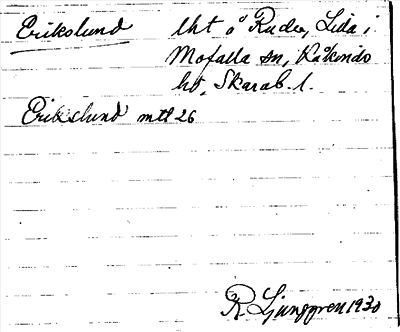 Erikslund lht å Ruder, Lida i
Mofalla sn, Kåkinds
hd, Skarab. l.
Erikslund mtl 26
R Ljunggren 1930